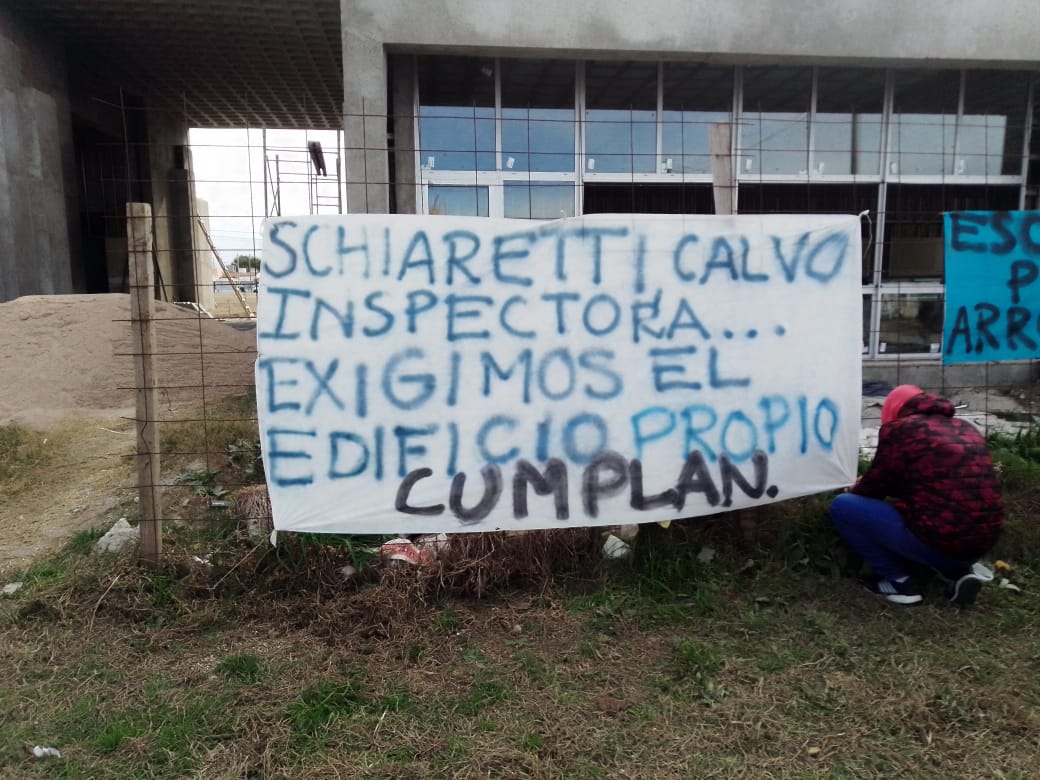 SCHIARETTI CALVO
INSPECTORA...
EXIGIMOS EL
EDIFICIO PROPIO
CUMPLAN.
ESC
P
ARR